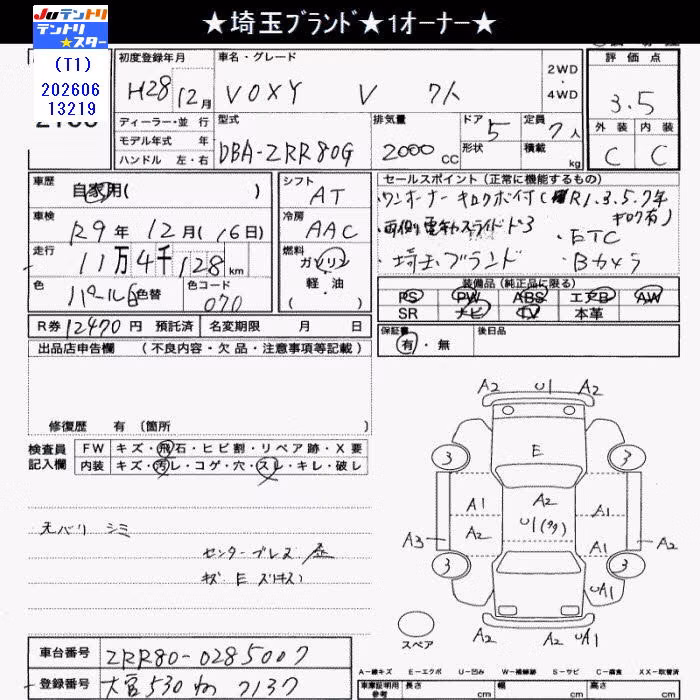 ★埼玉ブランド★1オーナー★
JUテントリ
テントリ
★スター
(T1)
202606
13219
初度登録年月 H28年 12月
車名・グレード VOXY V 7人
2WD・4WD
評価点 3.5
外装 C 内装 C
ディーラー・並行
モデル年式 年
ハンドル 左・右
型式 DBA-ZRR80G
排気量 2000cc
ドア 5 形状
定員 7人 積載 kg
車歴 自家用( )
車検 R9年 12月(16日)
走行 11万4千128km
色 パール白 色替 色コード 070
シフト AT
冷房 AAC
燃料 ガソリン・軽・油
セールスポイント(正常に機能するもの)
・ワンオーナー キロクボ付(R1.3.5.7年
キロク有)
・両側電動スライドドア
・ETC
・埼玉ブランド ・Bカメラ
装備品(純正品に限る)
PS PW ABS エアB AW
SR ナビ TV 本革
保証書 有・無 後日品
R券 12470円 預託済 名変期限 月 日
出品店申告欄 (不良内容・欠品・注意事項等記載)
修復歴 有 (箇所 )
検査員記入欄
FW キズ・飛石・ヒビ割・リペア跡・X要
内装 キズ・汚レ・コゲ・穴・スレ・キレ・破レ
天バリ シミ
A2 U1 A2
E
3 3
A1 A2 A1
A3 A2 U1 A1 A2
3 3
UA1
A2 A2 UA1
スペア
車台番号 ZRR80-0285007
登録番号 大宮530 ね 7137
A−線キズ E−エクボ U−凹み W−補修跡 S−サビ C−腐食 XX−取替済
車庫証明用参考 長さ cm 幅 cm 高さ cm